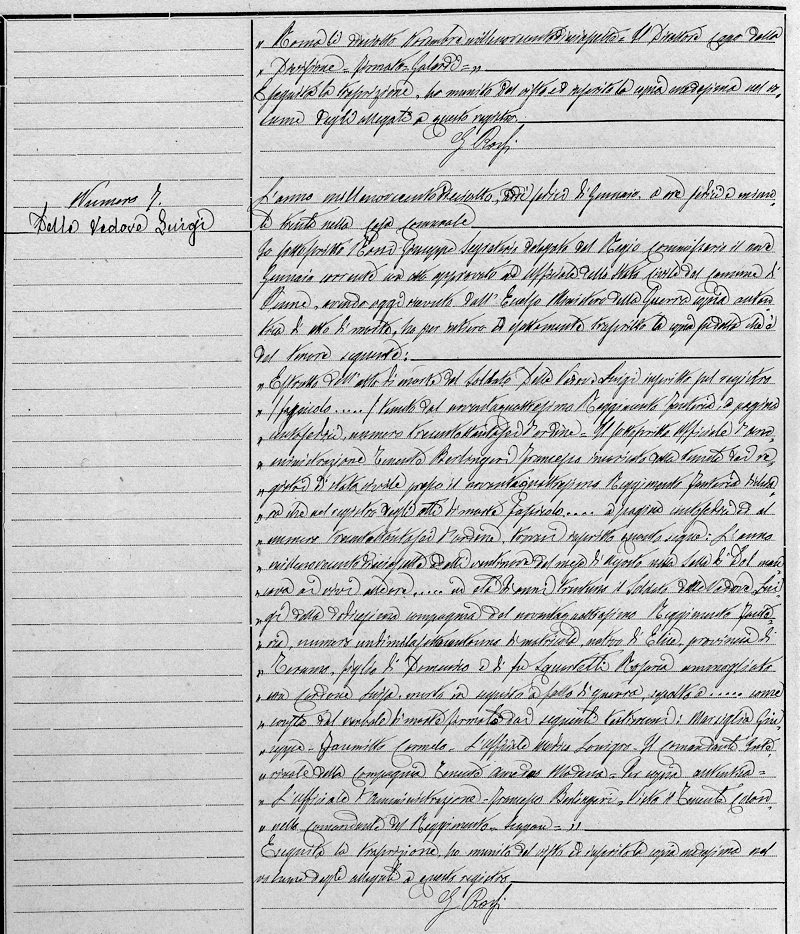 " Roma lì diciotto Novembre millenovecentodiciasette = Il Direttore Capo della
" Divisione = firmato = Galardi = "
Eseguita la trascrizione, ho munito del visto ed inserito la copia medesima nel vo-
lume degli allegati a questo registro.
G. Rossi
Numero 7.
Delle Vedove Luigi
L'anno millenovecentodiciotto, addì sedici di Gennaio, a ore sedici e minu-
ti trenta nella Casa Comunale
Io sottoscritto Rossi Giuseppe Segretario delegato dal Regio Commissario il nove
Gennaio corrente con atto approvato ad Ufficiale dello Stato Civile del Comune di
Penne, avendo oggi ricevuto dall'Eccelso Ministero della Guerra copia auten-
tica di atto di morte, ho per intero ed esattamente trascritto la copia suddetta che è
del tenore seguente:
" Estratto dell'atto di morte del Soldato Delle Vedove Luigi inscritto sul registro
" (fascicolo.....) tenuto dal novantaquattresimo Reggimento Fanteria, a pagina
" centosedici, numero trecento d'ordine = Il sottoscritto Ufficiale d'am-
" ministrazione Tenente Berlingeri Francesco incaricato della tenuta dei re-
" gistri di stato civile presso il novantaquattresimo Reggimento Fanteria dichia-
" ra che nel registro degli atti di morte fascicolo.... a pagina centosedici ed al
" numero d'ordine, trovasi inscritto quanto segue: L'anno
" millenovecentodiciasette addì ventinove del mese di Agosto nella Sella di Dol man-
" cava ai vivi alle ore..... in età di anni trentuno il Soldato delle Vedove Lui-
" gi della dodicesima compagnia del novantaquattresimo Reggimento Fante-
" ria, numero di matricola, nativo di Elice, provincia di
" Teramo, figlio di Domenico e di fu Squartecchi Rosaria ammogliato
" con Cardone Luisa, morto in seguito a fatto di guerra, sepolto a ..... come
" consta dal verbale di morte firmato dai seguenti testimoni: Marsiglia Giu-
" seppe = Carmelo = L'ufficiale medico = Il Comandante inte-
" rinale della Compagnia Tenente Modena = Per copia autentica =
" L'ufficiale d'Amministrazione = Francesco Berlingeri = Visto il Tenente Colon-
" nello comandante del Reggimento = = "
Eseguita la trascrizione, ho munito del visto ed inserito la copia medesima nel
volume degli allegati a questo registro
G. Rossi